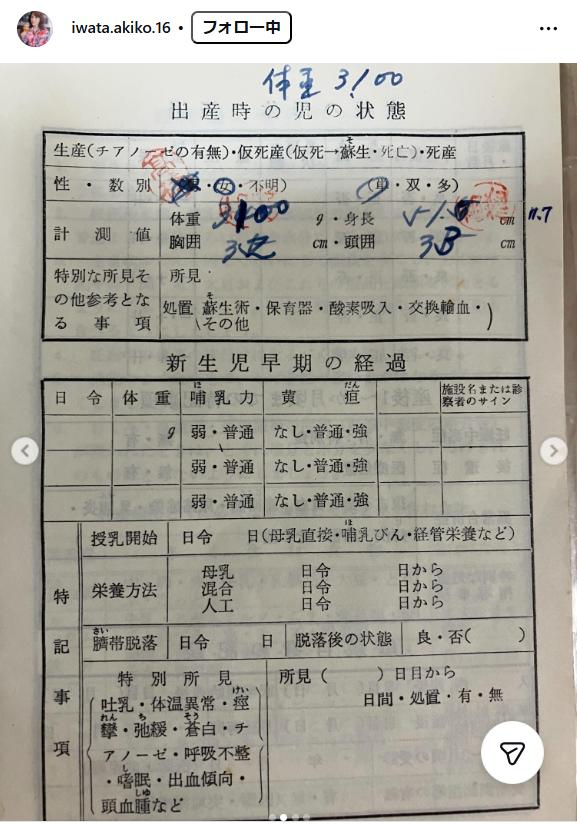 iwata.akiko.16 • フォロー中
体重 3100
出産時の児の状態
生産(チアノーゼの有無)・仮死産(仮死→蘇生・死亡)・死産
性・数別 ・女・不明) (単・双・多)
計測値
体重 3100 g・身長 cm
胸囲 cm・頭囲 cm
特別な所見その他参考となる事項
所見
処置(蘇生術・保育器・酸素吸入・交換輸血・その他)
新生児早期の経過
日令 体重 哺乳力 黄疸 施設名または診察者のサイン
g 弱・普通 なし・普通・強
弱・普通 なし・普通・強
弱・普通 なし・普通・強
特記事項
授乳開始 日令 日(母乳直接・哺乳びん・経管栄養など)
栄養方法
母乳 日令 日から
混合 日令 日から
人工 日令 日から
臍帯脱落 日令 日 脱落後の状態 良・否( )
特別所見
(吐乳・体温異常・痙
攣・弛緩・蒼白・チ
アノーゼ・呼吸不整
・嗜眠・出血傾向・
頭血腫など)
所見( )日目から
日間・処置・有・無